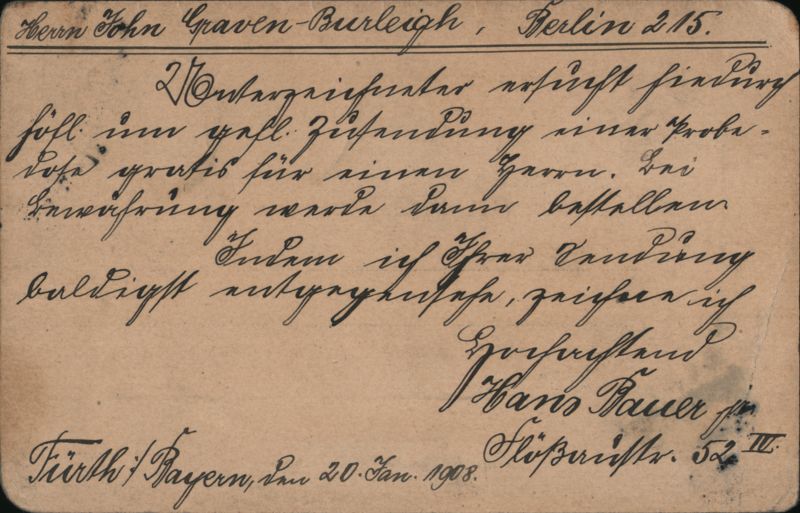 Herrn John Craven-Burleigh, Berlin 215.
Unterzeichneter ersucht hiedurch
höfl. um gefl. Zusendung einer Probe-
dose gratis für einen Herrn. Bei
Bewährung werde dann bestellen.
Indem ich Ihrer Sendung
baldigst entgegensehe, zeichne ich
Hochachtend
Hans Bauer jr.
Flößaustr. 52 IV.
Fürth i/Bayern, den 20. Jan. 1908.